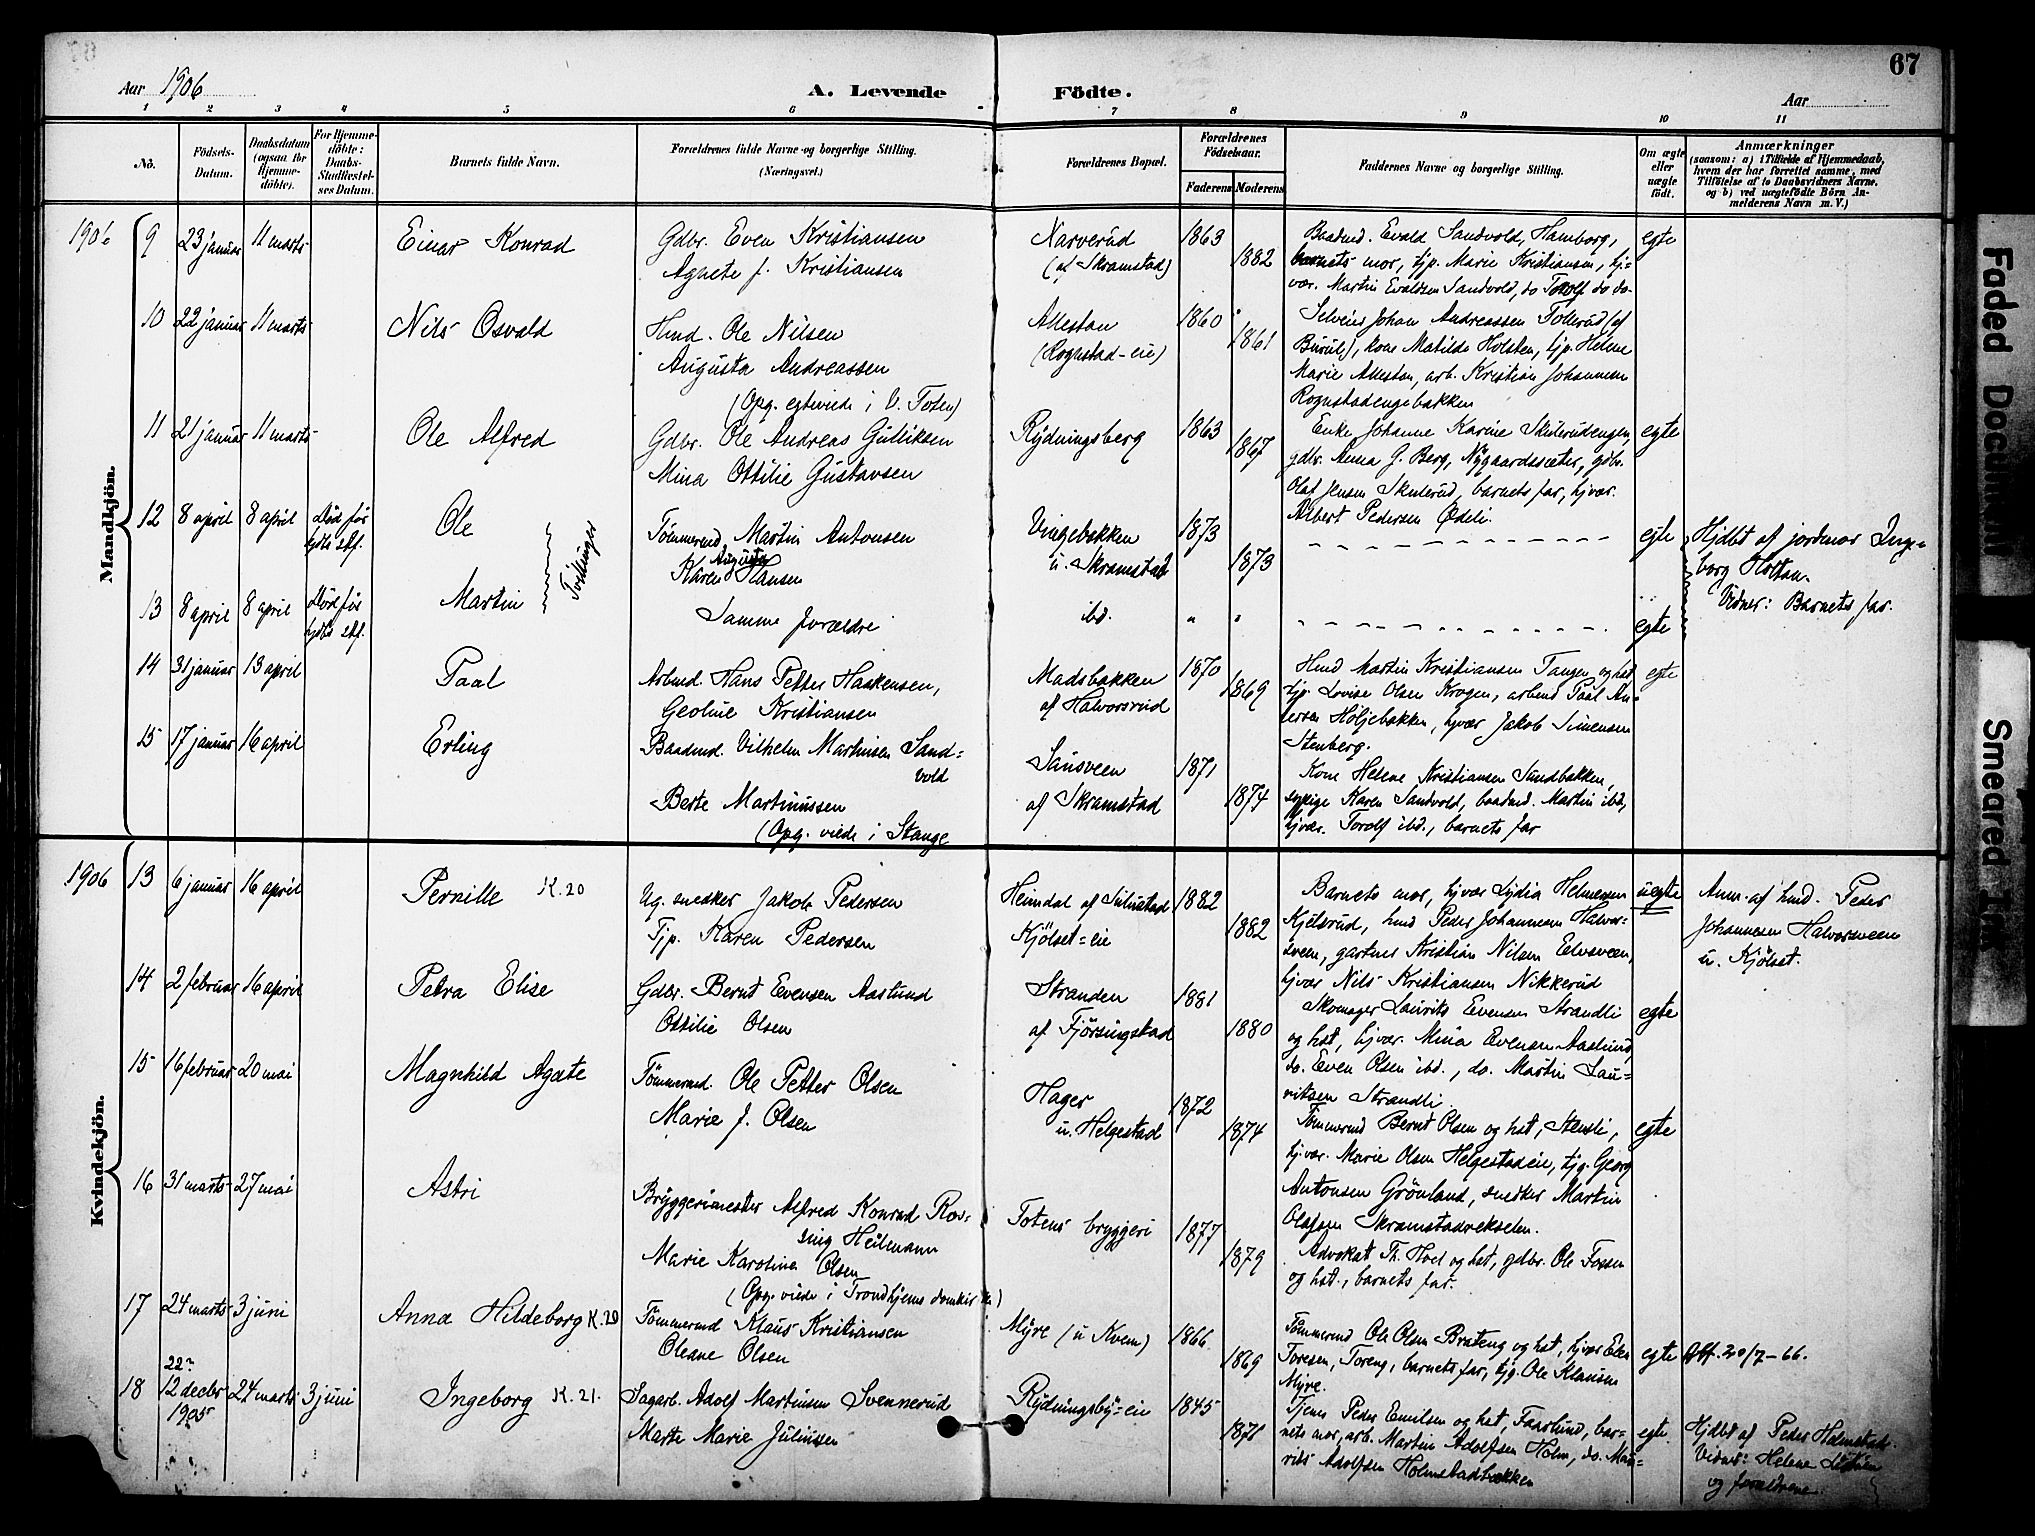 67
Aar 1906
A. Levende Födte.
Aar
1 2 3 4 5 6 7 8 9 10 11
No.
Födsels-Datum.
Daabsdatum (ogsaa for Hjemmedöbte).
For Hjemmedöbte: Daabs-Stadfæstelses Datum.
Barnets fulde Navn.
Forældrenes fulde Navne og borgerlige Stilling. (Næringsvei.)
Forældrenes Bopæl.
Forældrenes Födselsaar.
Faderens Moderens
Faddernes Navne og borgerlige Stilling.
Om ægte eller uægte födt.
Anmærkninger
(saasom: a) i Tilfælde af Hjemmedaab, hvem der har forrettet samme, med Tilföielse af to Daabsvidners Navne, og b) ved uægtefödte Börn Anmelderens Navn m. V.)
Mandkjön.
1906 9 23 januar 11 marts Einar Konrad
Gdbr. Even Kristiansen
Agnete f. Kristiansen
Narverud
(af Skramstad)
1863 1882
Baadmd. Evald Sandvold, Hamborg,
barnets mor, tjp. Marie Kristiansen, hj=
vær. Martin Evaldsen Sandvold, do Torolf do do
egte
10 22 januar 11 marts Nils Osvald
Hmd. Ole Nilsen
Augusta Andreassen
(Opg. egteviede i V. Toten)
Allestan
(Rognstad-eie)
1860 1861
Selveier Johan Andreassen Tollerud (af
Burul), kone Matilde Holsten, tjp. Helene
Marie Allestan, arb. Kristian Johannesen
Rognstadengebakken
11 21 januar 11 marts Ole Alfred
Gdbr. Ole Andreas Guliksen
Mina Ottilie Gustavsen
Rydningsberg
1863 1867
Enke Johanne Karine Skulerudengen,
gdbr. Anna G. Berg, Nygaardssæter, gdbr.
Olaf Jensen Skulerud, barnets far, hjvær.
Albert Pedersen Ødeli.
egte
12 8 april 8 april Död før hjdbs stf. Ole
Tvillinger
Tømmermd Martin Antonsen
Karen Augusta Hansen
Vingebakken
u. Skramstad
1873 1873
egte
Hjdbt af jordmor Inge=
borg Holtan.
Vidner: Barnets far.
13 8 april 8 april Död før hjdbs stf. Martin
Samme forældre
ibd. " "
egte
14 31 januar 13 april Paal
Arbmd. Hans Petter Haakensen,
Geoline Kristiansen
Madsbakken
af Halvorsrud
1870 1869
Hmd Martin Kristiansen Tangen og hst
tjp. Lovise Olsen Krogen, arbmd Paal An=
dersen Høljebakken, hjvær Jakob Simensen
Stenberg.
egte
15 17 januar 16 april Erling
Baadmd. Vilhelm Martinsen Sand=
vold
Berte Martinussen
(Opg. viede i Stange
Sansveen
af Skramstad
1871 1874
Kone Helene Kristiansen Sundbakken,
sypige Karen Sandvold, baadmd. Martin ibd,
hjvær. Torolf ibd., barnets far
Kvindekjön.
1906 13 6 januar 16 april Pernille K.20
Ug. snedker Jakob Pedersen
Tjp. Karen Pedersen
Heimdal af Sulustad
Kjölset=eie
1882 1882
Barnets mor, hjvær Lydia Helmersen
Kjelsrud, hmd Peder Johannesen Halvor=
sveen, gartner Kristian Nilsen Elvsveen,
hjvær Nils Kristiansen Nikkerud
uegte
Anm. af hmd. Peder
Johannesen Halvorsveen
u. Kjölset.
14 2 februar 16 april Petra Elise
Gdbr. Bernt Evensen Aaslund
Ottilie Olsen
Stranden
af Fjørsingstad
1881 1880
Skomager Laurits Evensen Strandli
og hst, hjvær. Mina Evensen Aaslund,
do. Even Olsen ibd., do. Martin Lau=
ritsen Strandli
egte
15 16 februar 20 mai Magnhild Agate
Tömmermd. Ole Petter Olsen
Marie J. Olsen
Hager
u. Helgestad
1872 1874
Tömmermd Bernt Olsen og hst, Stensli,
hjvær. Marie Olsen Helgestadeie, tjg. Georg
Antonsen Grönland, snedker Martin
Olafsen Skramstadvekselen.
egte
16 31 marts 27 mai Astri
Bryggerimester Alfred Konrad Ros=
sing Heilmann
Marie Karoline Olsen
(Opg. viede i Trondhjems domkirke)
Totens bryggeri
1877 1879
Advokat Th. Hoel og hst, gdbr. Ole Fossen
og hst., barnets far.
17 24 marts 3 juni Anna Hildeborg K.20
Tömmermd Klaus Kristiansen
Oleane Olsen
Myre (u Kvem)
1866 1869
Tömmermd Ole Olsen Brateng og hst, hjvær Elen
Toresen, Toreng, barnets far, tjg. Ole Klausen
Myre.
egte
Aff. 20/7-66.
18 22 12 decbr 1905 24 marts 3 juni Ingeborg K.21.
Sagarb. Adolf Martinsen Svennerud
Marte Marie Juliussen
Rydningsby=eie
1845 1871
Tjener Peder Emilsen og hst, Faaslund, bar=
nets mor, arb. Martin Adolfsen Holm, do. Mau=
rits Adolfsen Holmstadbakken
egte
Hjdbt af Peder Holmstad.
Vidner: Helene
og forældrene.
Faded Document
Smeared Ink